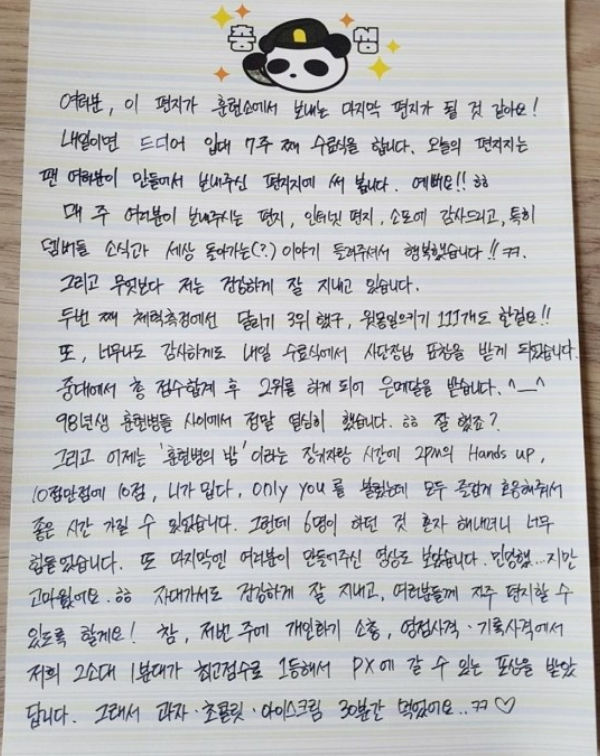 충 성
여러분, 이 편지가 훈련소에서 보내는 마지막 편지가 될 것 같아요!
내일이면 드디어 입대 7주 째 수료식을 합니다. 오늘의 편지지는
팬 여러분이 만들어서 보내주신 편지지에 써 봅니다. 예뻐요!! ㅎㅎ
매 주 여러분이 보내주시는 편지, 인터넷 편지, 소포에 감사드리고, 특히
멤버들 소식과 세상 돌아가는(?) 이야기 들려주셔서 행복했습니다!! ㅋㅋ.
그리고 무엇보다 저는 건강하게 잘 지내고 있습니다.
두번 째 체력측정에선 달리기 3위 했구, 윗몸일으키기 111개도 할걸요!!
또, 너무나도 감사하게도 내일 수료식에서 사단장님 표창을 받게 되었습니다.
중대에서 총 점수합계 후 2위를 하게 되어 은메달을 받습니다. ^__^
98년생 훈련병들 사이에서 정말 열심히 했습니다. ㅎㅎ 잘 했죠?
그리고 어제는 '훈련병의 밤' 이라는 장기자랑 시간에 2PM의 Hands up,
10점만점에 10점, 니가 밉다, Only you 를 불렀는데 모두 즐겁게 호응해줘서
좋은 시간 가질 수 있었습니다. 그런데 6명이 하던 것 혼자 해내려니 너무
힘들었습니다. 또 마지막엔 여러분이 만들어주신 영상도 보았습니다. 민망했...지만
고마웠어요. ㅎㅎ 자대가서도 건강하게 잘 지내고, 여러분들께 자주 편지할 수
있도록 할게요! 참, 저번 주에 개인화기 소총, 영점사격·기록사격에서
저희 2소대 1분대가 최고점수로 1등해서 PX에 갈 수 있는 포상을 받았
답니다. 그래서 과자·초콜릿·아이스크림 30분간 먹었어요..ㅋㅋ ♡